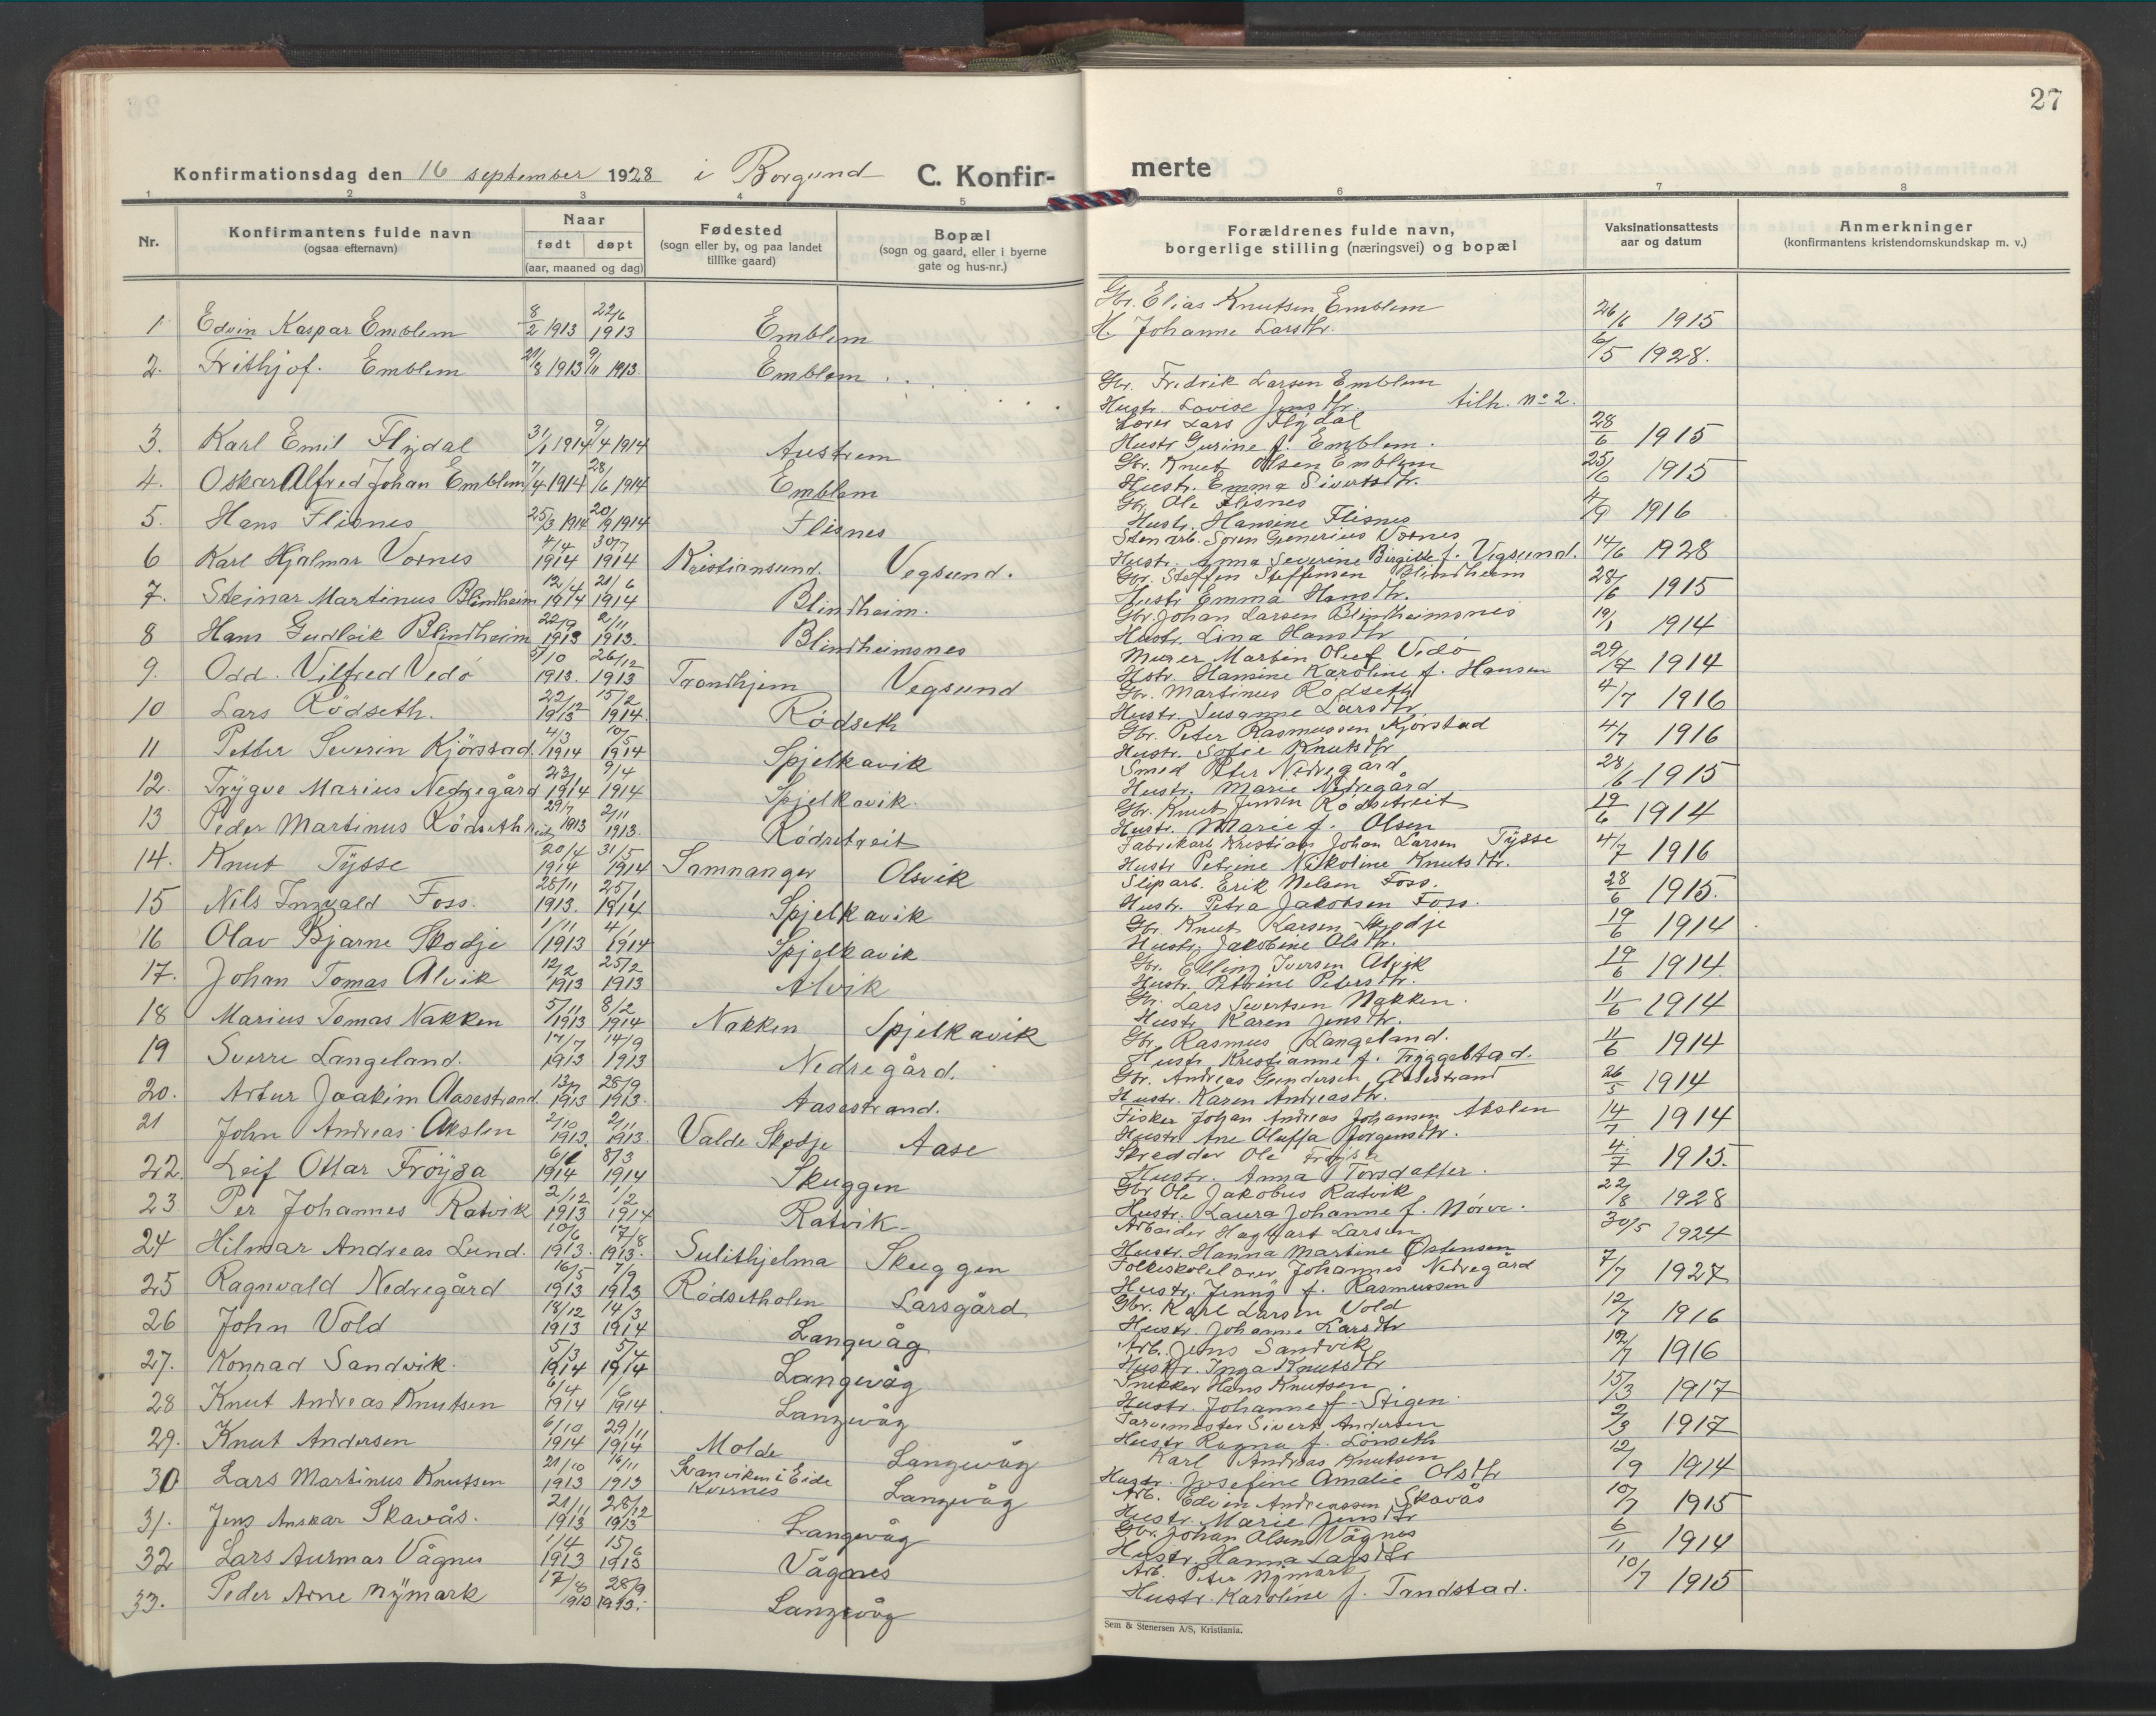 27
Konfirmationsdag den 16 september 1928 i Borgund C. Konfir-
merte
1 2 3 4 5 6 7 8
Nr. Konfirmantens fulde navn (ogsaa efternavn) Naar født døpt (aar, maaned og dag) Fødested (sogn eller by, og paa landet tillike gaard) Bopæl (sogn og gaard, eller i byerne gate og hus-nr.) Forældrenes fulde navn, borgerlige stilling (næringsvei) og bopæl Vaksinationsattests aar og datum Anmerkninger (konfirmantens kristendomskundskap m. v.)
1 Edvin Kaspar Emblem 8/2 1913 22/6 1913 Emblem Gbr. Elias Knutsen Emblem H. Johanne Larsdtr. 26/6 1915
2. Frithjof. Emblem 21/8 1913 9/11 1913 Emblem Gbr. Fredrik Larsen Emblem Hustr. Lovise Jensdtr. tilh. No 2. 6/5 1928.
3. Karl Emil Flydal 31/1 1914 9/4 1914 Austrem Lars Flydal Hustr Gurine f. Emblem. 28/6 1915
4. Oskar Alfred Johan Emblem 7/4 1914 28/6 1914 Emblem Gbr. Knut Olsen Emblem Hustr. Emma Sivertsdtr. 25/6 1915
5. Hans Flisnes 25/3 1914 20/9 1914 Flisnes Gbr. Ole Flisnes Hustr. Hansine Flisnes 4/9 1916
6 Karl Hjalmar Vornes 4/4 1914 30/7 1914 Kristiansund. Vegsund. Stenarb. Søren Grenerius Vornes Hustr. Anna Severine Birgitte f. Vegsund. 14/6 1928
7. Steinar Martinus Blindheim 12/4 1914 21/6 1914 Blindheim. Gbr. Steffen Steffensen Blindheim Hustr Emma Hansdtr. 28/6 1915
8 Hans Gudleik Blindheim 22/9 1913 2/11 1913. Blindheimsnes Gbr. Johan Larsen Blindheimsnes Hustr. Lina Hansdtr 19/1 1914
9. Odd. Vilfred Vedø 5/10 1913. 26/12 1913 Trondhjem Vegsund Murer Martin Oluf Vedø Hstr. Hansine Karoline f. Hansen 29/7 1914
10 Lars Rødseth. 22/12 1913 15/2 1914. Rødseth Gbr. Martinus Rødseth Hustr. Susanne Larsdtr 4/7 1916
11 Petter Severin Kjørstad. 4/3 1914 10/5 1914 Spjelkavik Gbr. Peter Rasmussen Kjørstad Hustr. Sofie Knutsdtr 4/7 1916
12. Trygve Marius Nedregård 23/1 1914 9/4 1914 Spjelkavik. Smed Peter Nedregård Hustr. Marie Nedregård 28/6 1915
13 Peder Martinus Rødsethreit 29/7 1913 2/11 1913. Rødsetreit Gbr. Knut Jensen Rødsetreit Hustr. Marie f. Olsen 19/6 1914
14. Knut Tysse 20/4 1914 31/5 1914 Samnanger Olsvik Fabrikarb Kristian Johan Larsen Tysse Hustr Petrine Nikoline Knutsdtr. 4/7 1916
15 Nils Ingvald Foss. 25/11 1913. 25/1 1914 Spjelkavik Sliparb. Erik Nelsen Foss. Hustr. Petra Jakobsen Foss. 28/6 1915.
16 Olav Bjarne Skodje 1/11 1913 4/1 1914 Spjelkavik Gbr. Knut Larsen Skodje Hustr. Jakobine Olsdtr. 19/6 1914
17. Johan Tomas Alvik 12/2 1913 25/2 1913 Alvik Gbr. Elling Iversen Alvik Hustr. Petrine Petersdtr. 19/6 1914.
18 Marius Tomas Nakken 5/11 1913 8/2 1914 Nakken Spjelkavik Gbr. Lars Sivertsen Nakken. Hustr. Karen Jensdtr. 11/6 1914
19 Sverre Langeland. 17/7 1913 14/9 1913 Nedregård. Gbr. Rasmus Langeland. Hustr. Kristianne f. Tryggestad. 11/6 1914
20. Artur Joakim Aasestrand. 13/7 1913 28/9 1913. Aasestrand. Gbr. Andreas Gundersen Aasestrand Hustr. Karen Andreasdtr. 26/5 1914
21 John Andreas Akslen 2/10 1913. 2/11 1913. Valde Skodje Aase Fisker Johan Andreas Johansen Akslen Hustr. Ane Oluffa Jørgensdtr. 14/7 1914
22. Leif Ottar Frøysa 1914 8/3 1914 Skuggen Skredder Ole Frøysa Hustr. Anna Torsdatter. 4/7 1915.
23 Per Johannes Ratvik 2/12 1913 1/2 1914 Ratvik. Gbr Ole Jakobus Ratvik Hustr. Laura Johanne f. Nørve. 22/8 1928
24 Hilmar Andreas Lund. 10/6 1913. 17/8 1913. Sulithjelma Skuggen Arbeider Hagbart Larsen Hustr. Hanna Martine Østensen 30/5 1924
25 Ragnvald Nedregård 16/5 1913 7/9 1913 Rødsetholen Larsgård Folkeskolelærer Johannes Nedregård Hustr. Jenny f. Rasmussen 7/7 1927
26 John Vold 18/12 1913 14/3 1914 Langevåg Gbr. Karl Larsen Vold Hustr. Johanne Larsdtr 12/7 1916
27. Konrad Sandvik. 5/3 1914 5/4 1914 Langevåg Arb. Jens Sandvik Hustr. Inga Knutsdtr 12/7 1916
28 Knut Andreas Knutsen 6/4 1914 1/6 1914 Langevåg Snekker Hans Knutsen Hustr. Johanne f. Stigen 15/3 1917
29. Knut Andersen 6/10 1914 29/11 1914 Molde Langevåg Farvemester Sivert Andersen Hustr Ragna f. Lönseth 2/3 1917
30 Lars Martinus Knutsen 21/10 1913 16/11 1913 Svanviken i Eide Kvernes Langevåg Karl Andreas Knutsen Hustr. Josefine Amalie Olsdtr 12/9 1914
31. Jens Anskar Skavås. 21/11 1913 28/12 1913 Langevåg Arb. Edvin Andreassen Skavås Hustr. Marie Jensdtr 10/7 1915
32 Lars Aurmar Vågnes 1/4 1913 15/6 1913 Vågnes Gbr. Johan Olsen Vågnes Hustr. Hanna Larsdtr 6/11 1914
33. Peder Arne Nymark 17/8 1913 28/9 1913. Langevåg Arb. Peter Nymark Hustr. Karoline f. Tandstad. 10/7 1915
Sem & Stenersen A/S, Kristiania.